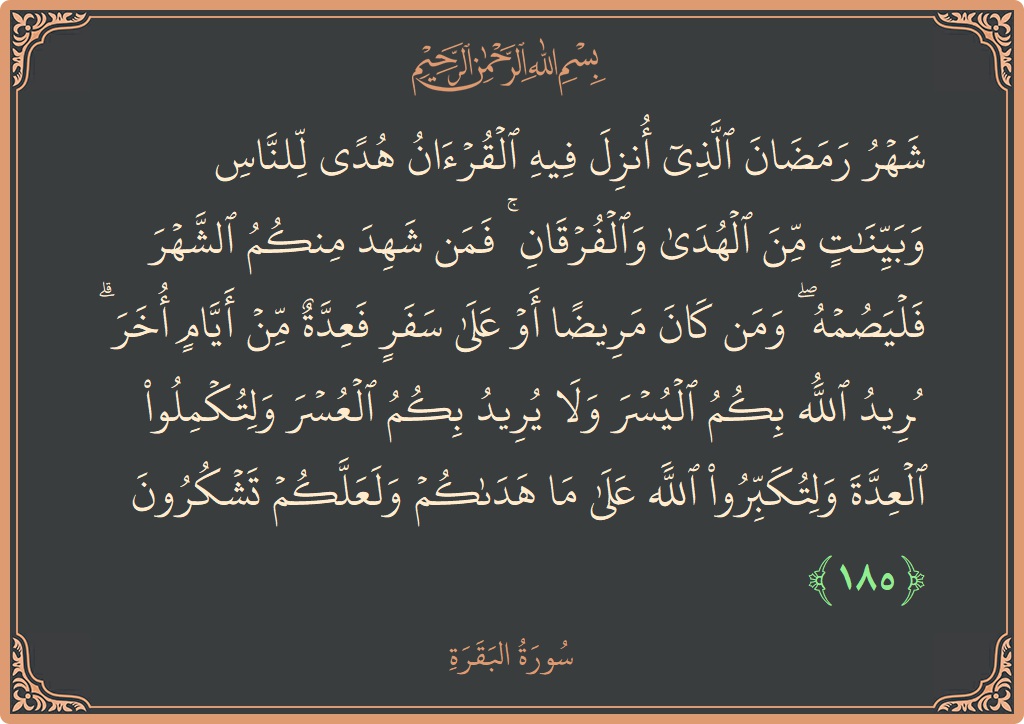 بِسْمِ ٱللَّهِ ٱلرَّحْمَٰنِ ٱلرَّحِيمِ
شَهْرُ رَمَضَانَ ٱلَّذِىٓ أُنزِلَ فِيهِ ٱلْقُرْءَانُ هُدًى لِّلنَّاسِ
وَبَيِّنَٰتٍ مِّنَ ٱلْهُدَىٰ وَٱلْفُرْقَانِ ۚ فَمَن شَهِدَ مِنكُمُ ٱلشَّهْرَ
فَلْيَصُمْهُ ۖ وَمَن كَانَ مَرِيضًا أَوْ عَلَىٰ سَفَرٍ فَعِدَّةٌ مِّنْ أَيَّامٍ أُخَرَ ۗ
يُرِيدُ ٱللَّهُ بِكُمُ ٱلْيُسْرَ وَلَا يُرِيدُ بِكُمُ ٱلْعُسْرَ وَلِتُكْمِلُوا۟
ٱلْعِدَّةَ وَلِتُكَبِّرُوا۟ ٱللَّهَ عَلَىٰ مَا هَدَىٰكُمْ وَلَعَلَّكُمْ تَشْكُرُونَ
﴿١٨٥﴾
سُورَةُ البَقَرَةِ